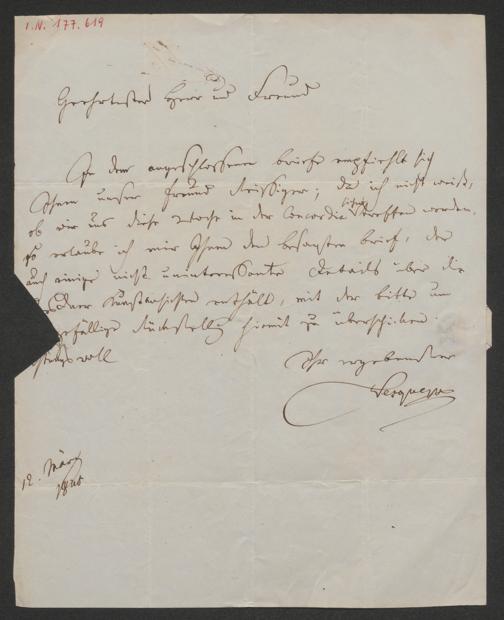 I.N. 177.619
Geehrtester Herr und Freund
In dem angeschlossenen briefe empfiehlt sich
Ihnen unser Freund Reissiger; da ich nicht weiß,
ob wir uns diese Woche in der Concordia treffen werden,
so erlaube ich mir Ihnen den besagten brief, der
auch einige nicht uninteressante Details über die
Kunstansichten enthält, mit der bitte um
gefällige Rückstellg hiemit zu überschicken.
voll
Ihr ergebenster
12. März